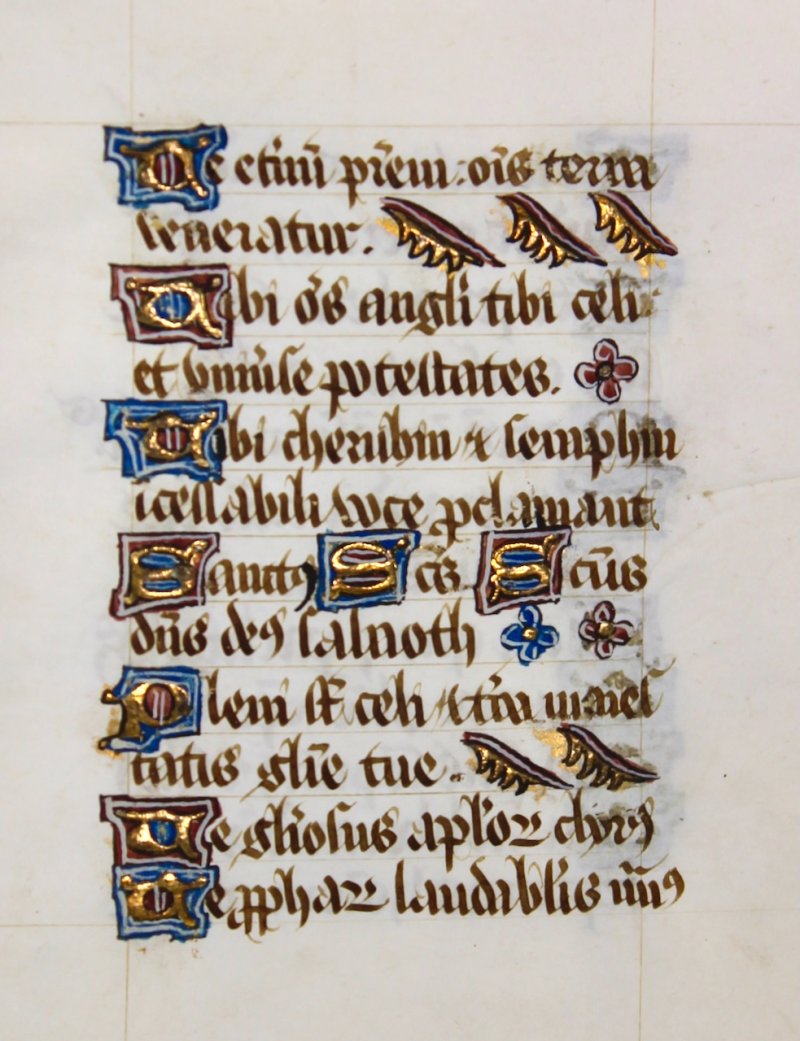 Te et̄nū pr̄em : oīs terra
veneratur.
Tibi oēs angli tibi celi
et vniu̾se potestates.
Tibi cherubin ⁊ seraphin
īcessabili voce ꝓclamant
Sanctꝰ Sc̄s Sc̄us
dūs deꝰ sabaoth
Pleni st̄ celi ⁊ tr̄a maies
tatis glīe tue.
Te glīosus apl̓oꝝ chorꝰ
Te ꝓphaꝝ laudabl̓is nūꝰ